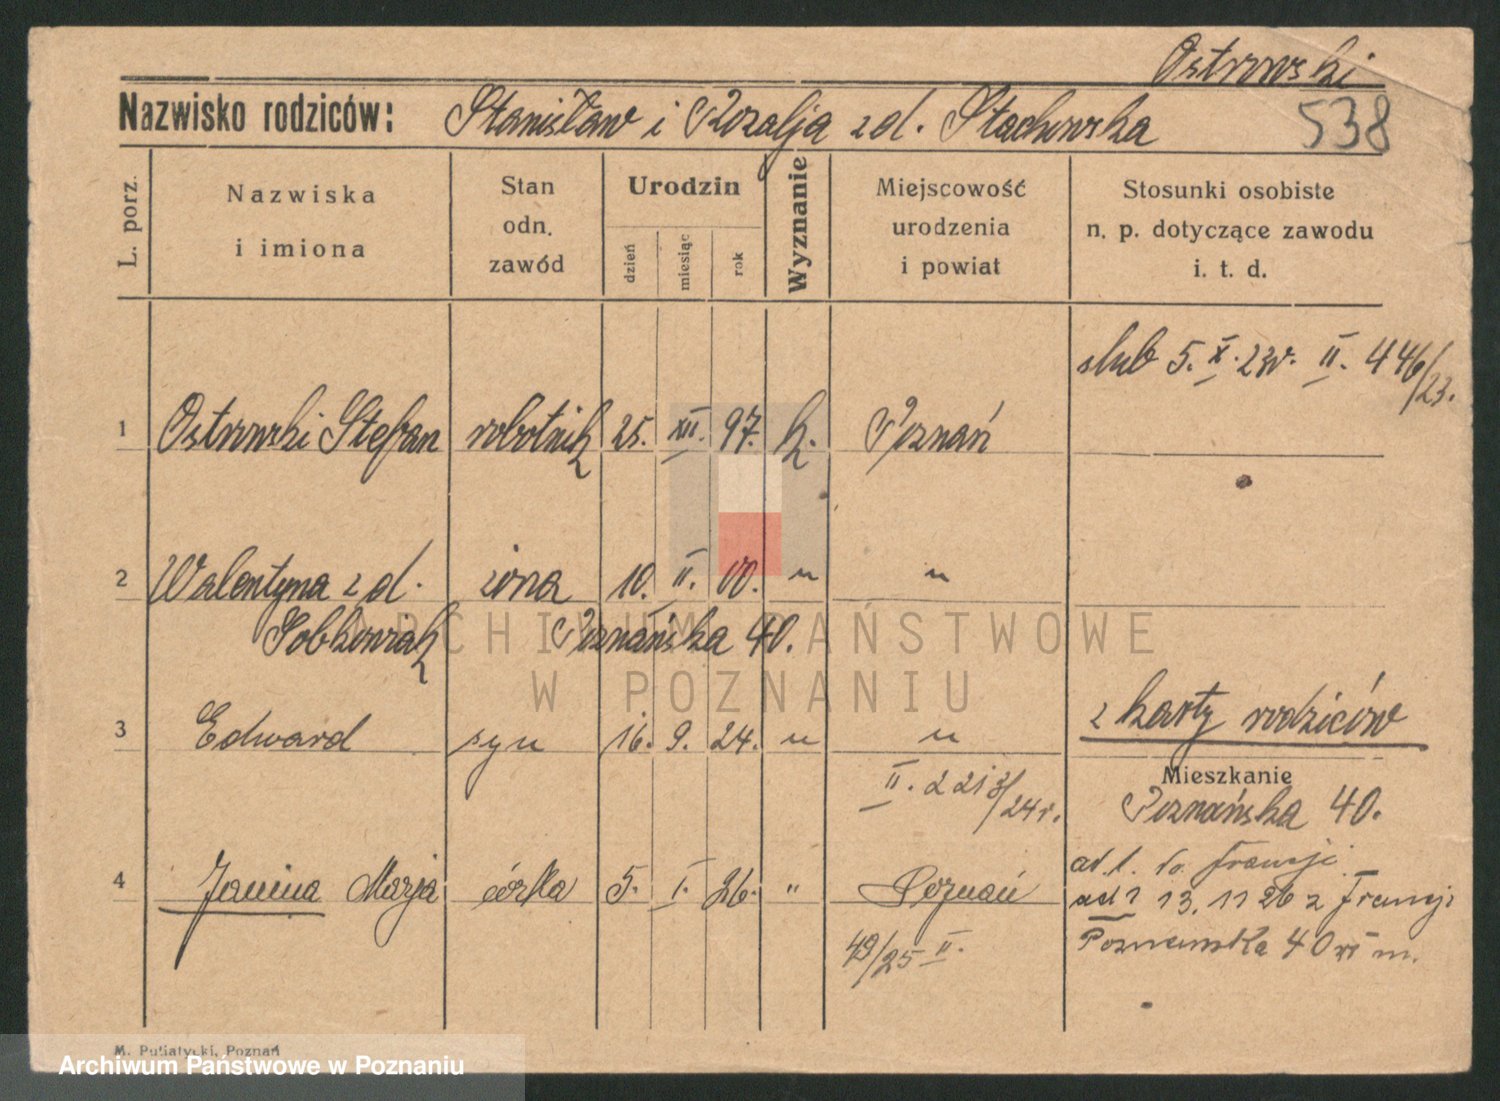 Ostrowski
Nazwisko rodziców: Stanisław i Rozalja z d. Stachowska
538
L. porz.
Nazwiska
i imiona
Stan
odn.
zawód
Urodzin
dzień
miesiąc
rok
Wyznanie
Miejscowość
urodzenia
i powiat
Stosunki osobiste
n. p. dotyczące zawodu
i. t. d.
ślub 5. X. 23r. II. 446/23.
1 Ostrowski Stefan robotnik 25. XII. 97. k. Poznań
2 Walentyna z d. żona 10. II. 00. " "
Sobkowiak Poznańska 40.
z karty rodziców
3 Edward syn 16. 9. 24. " "
Mieszkanie
II. 2213/24r. Poznańska 40.
ad. 1. do Francji
4 Janina Marja córka 5. I. 26. " Poznań
ad 1 13. 11 26 z Francji
49/25 II. Poznańska 40 m.
ARCHIWUM PAŃSTWOWE
W POZNANIU
M. Putiatycki, Poznań
Archiwum Państwowe w Poznaniu